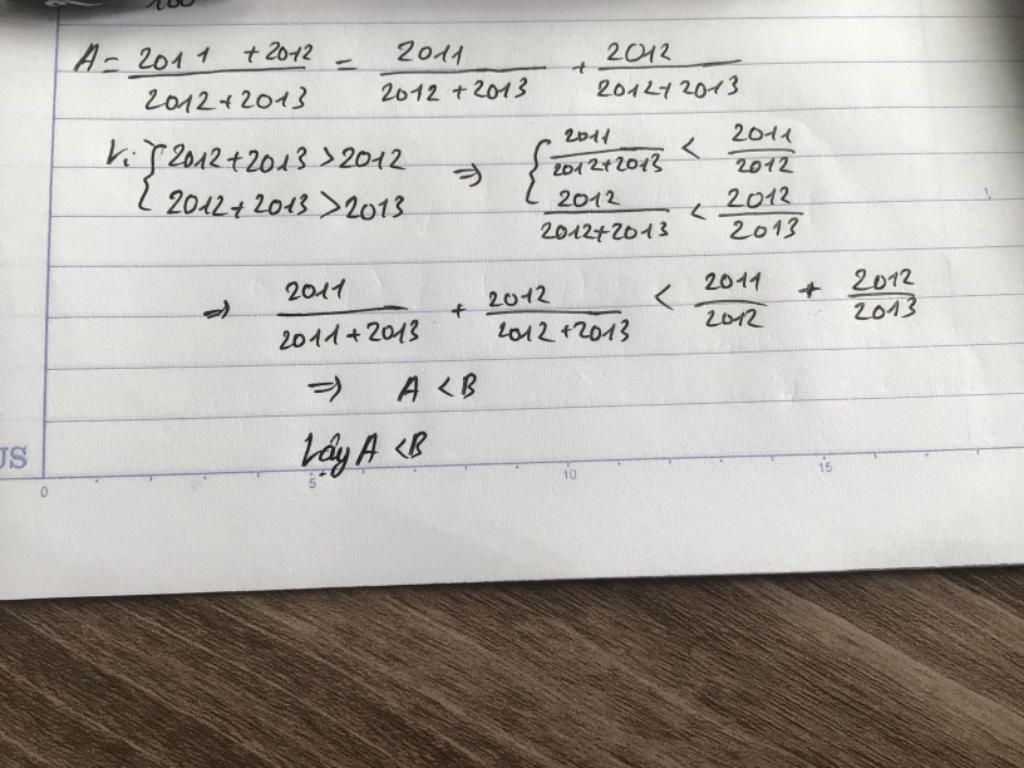 100
A = (2011 + 2012)/(2012 + 2013) = 2011/(2012 + 2013) + 2012/(2012 + 2013)
Vì { 2012 + 2013 > 2012 ⇒ { 2011/(2012 + 2013) < 2011/2012
2012 + 2013 > 2013 2012/(2012 + 2013) < 2012/2013
⇒ 2011/(2011 + 2013) + 2012/(2012 + 2013) < 2011/2012 + 2012/2013
⇒ A < B
Vậy A < B
US
0 5 10 15